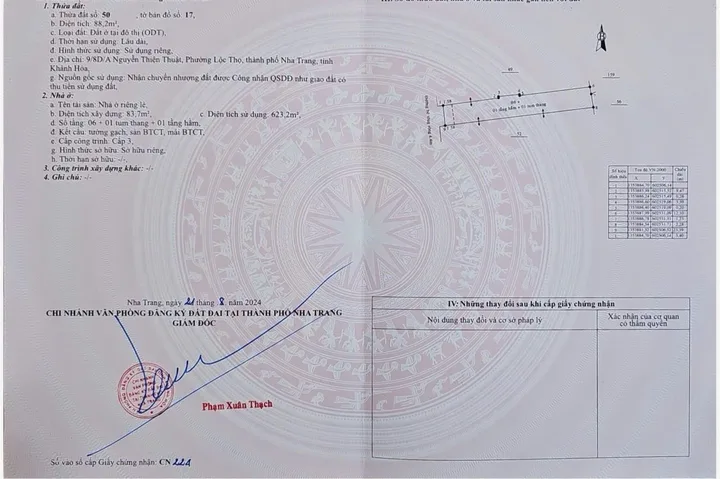 1. Thửa đất:
a. Thửa đất số: 50 , tờ bản đồ số: 17,
b. Diện tích: 88,2m²,
c. Loại đất: Đất ở tại đô thị (ODT),
d. Thời hạn sử dụng: Lâu dài,
đ. Hình thức sử dụng: Sử dụng riêng,
e. Địa chỉ: 9/8D/A Nguyễn Thiện Thuật, Phường Lộc Thọ, thành phố Nha Trang, tỉnh
Khánh Hòa,
g. Nguồn gốc sử dụng: Nhận chuyển nhượng đất được Công nhận QSDĐ như giao đất có
thu tiền sử dụng đất.
2. Nhà ở:
a. Tên tài sản: Nhà ở riêng lẻ,
b. Diện tích xây dựng: 83,7m², c. Diện tích sử dụng: 623,2m²,
d. Số tầng: 06 + 01 tum thang + 01 tầng hầm,
đ. Kết cấu: tường gạch, sàn BTCT, mái BTCT,
e. Cấp công trình: Cấp 3,
g. Hình thức sở hữu: Sở hữu riêng,
h. Thời hạn sở hữu: -/-
3. Công trình xây dựng khác: -/-
4. Ghi chú: -/-
Số hiệu đỉnh thửa
Tọa độ VN-2000
Chiều dài (m)
X Y
Nha Trang, ngày 21 tháng 8 năm 2024
CHI NHÁNH VĂN PHÒNG ĐĂNG KÝ ĐẤT ĐAI TẠI THÀNH PHỐ NHA TRANG
GIÁM ĐỐC
Phạm Xuân Thạch
Số vào sổ cấp Giấy chứng nhận: CN 221
IV. Những thay đổi sau khi cấp giấy chứng nhận
Nội dung thay đổi và cơ sở pháp lý
Xác nhận của cơ quan
có thẩm quyền